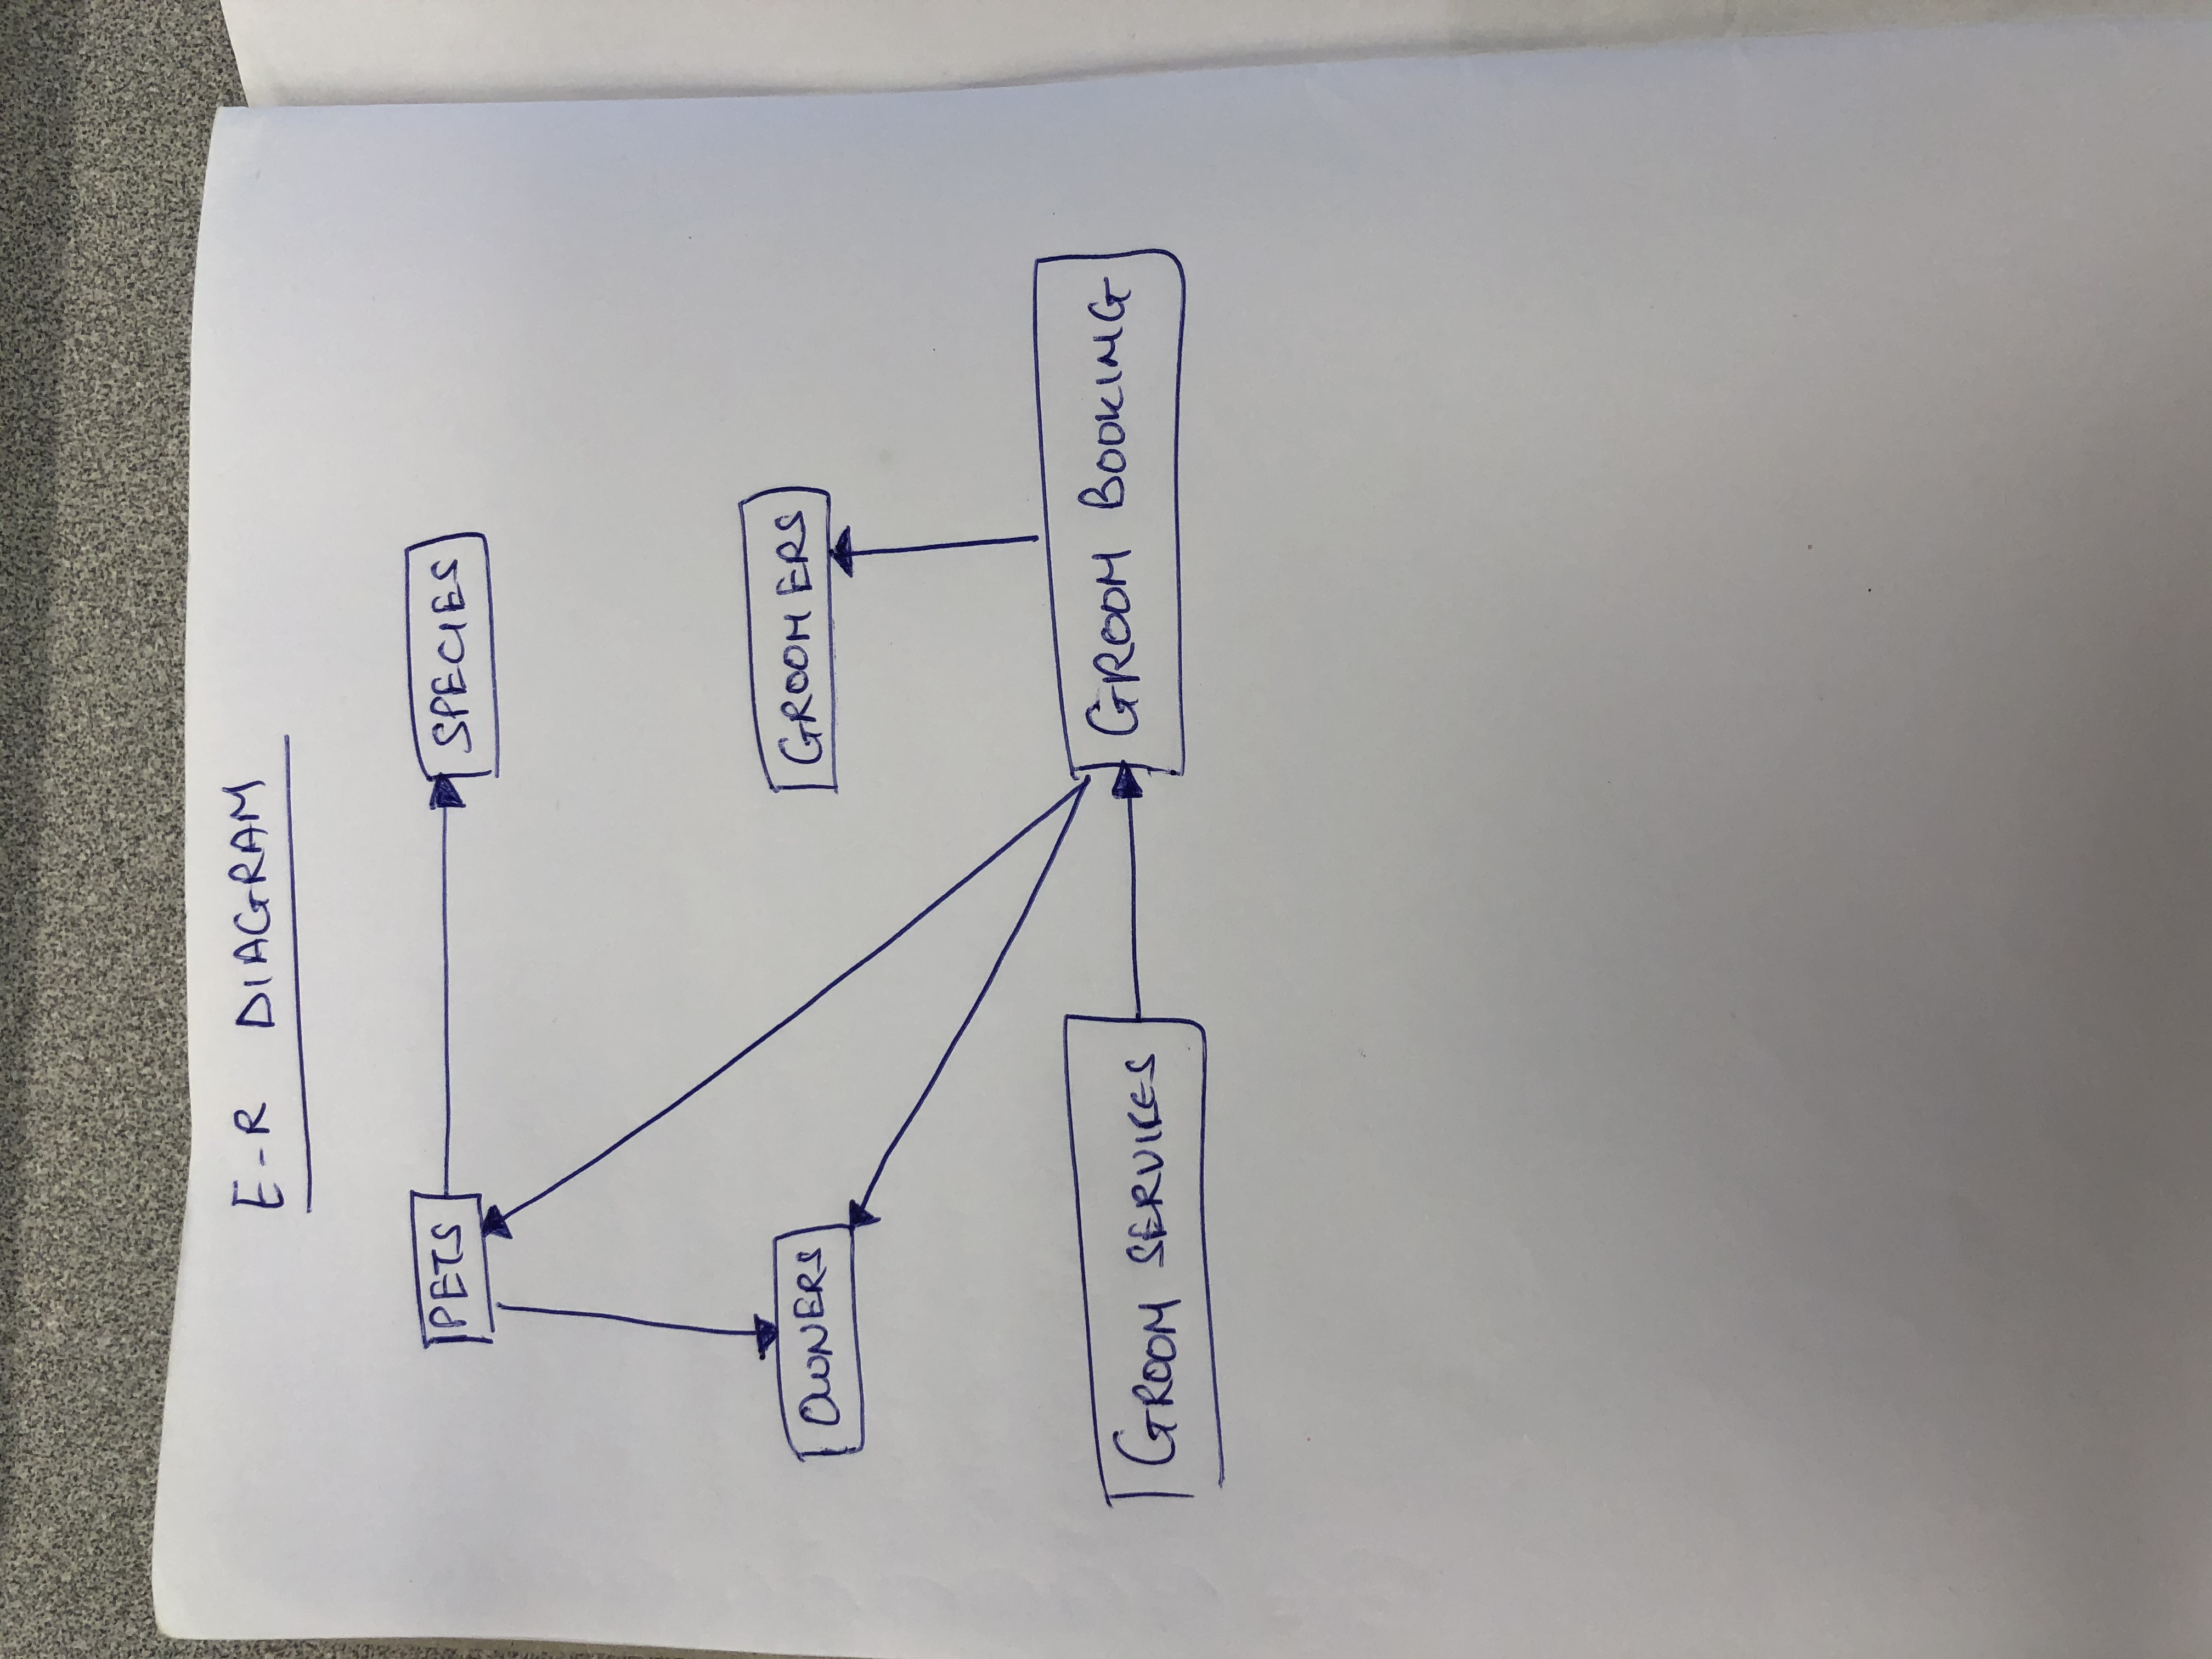 E-R DIAGRAM
PETS
SPECIES
OWNERS
GROOMERS
GROOM SERVICES
GROOM BOOKING